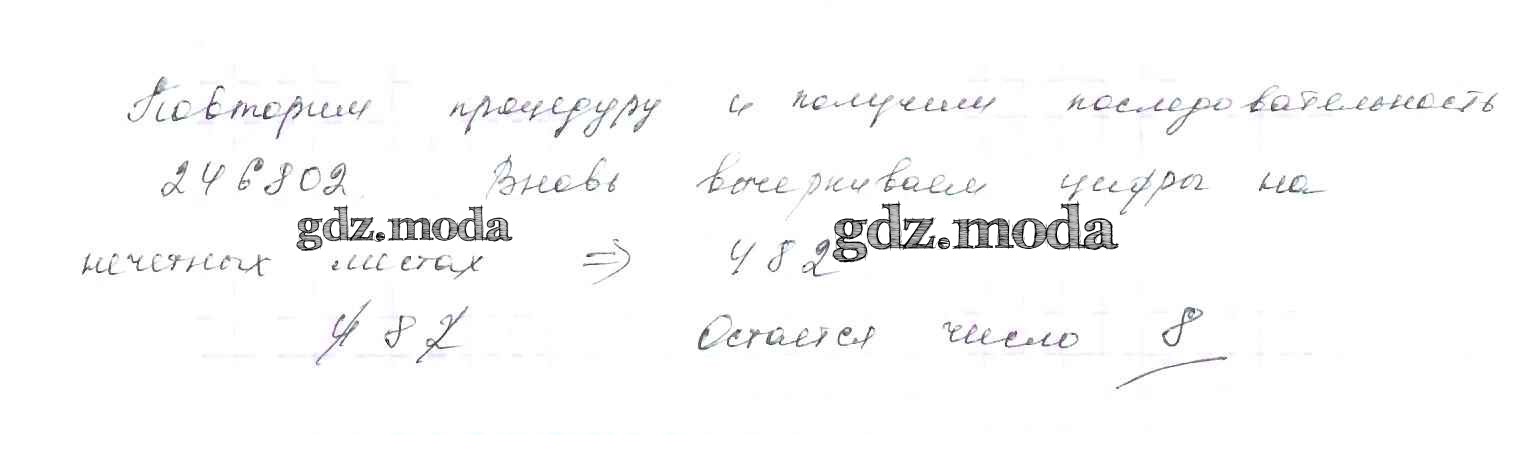 Повторим процедуру и получим последовательность
246802. Вновь вычеркиваем цифры на
gdz.moda gdz.moda
нечетных местах => 482
482 Остается число 8